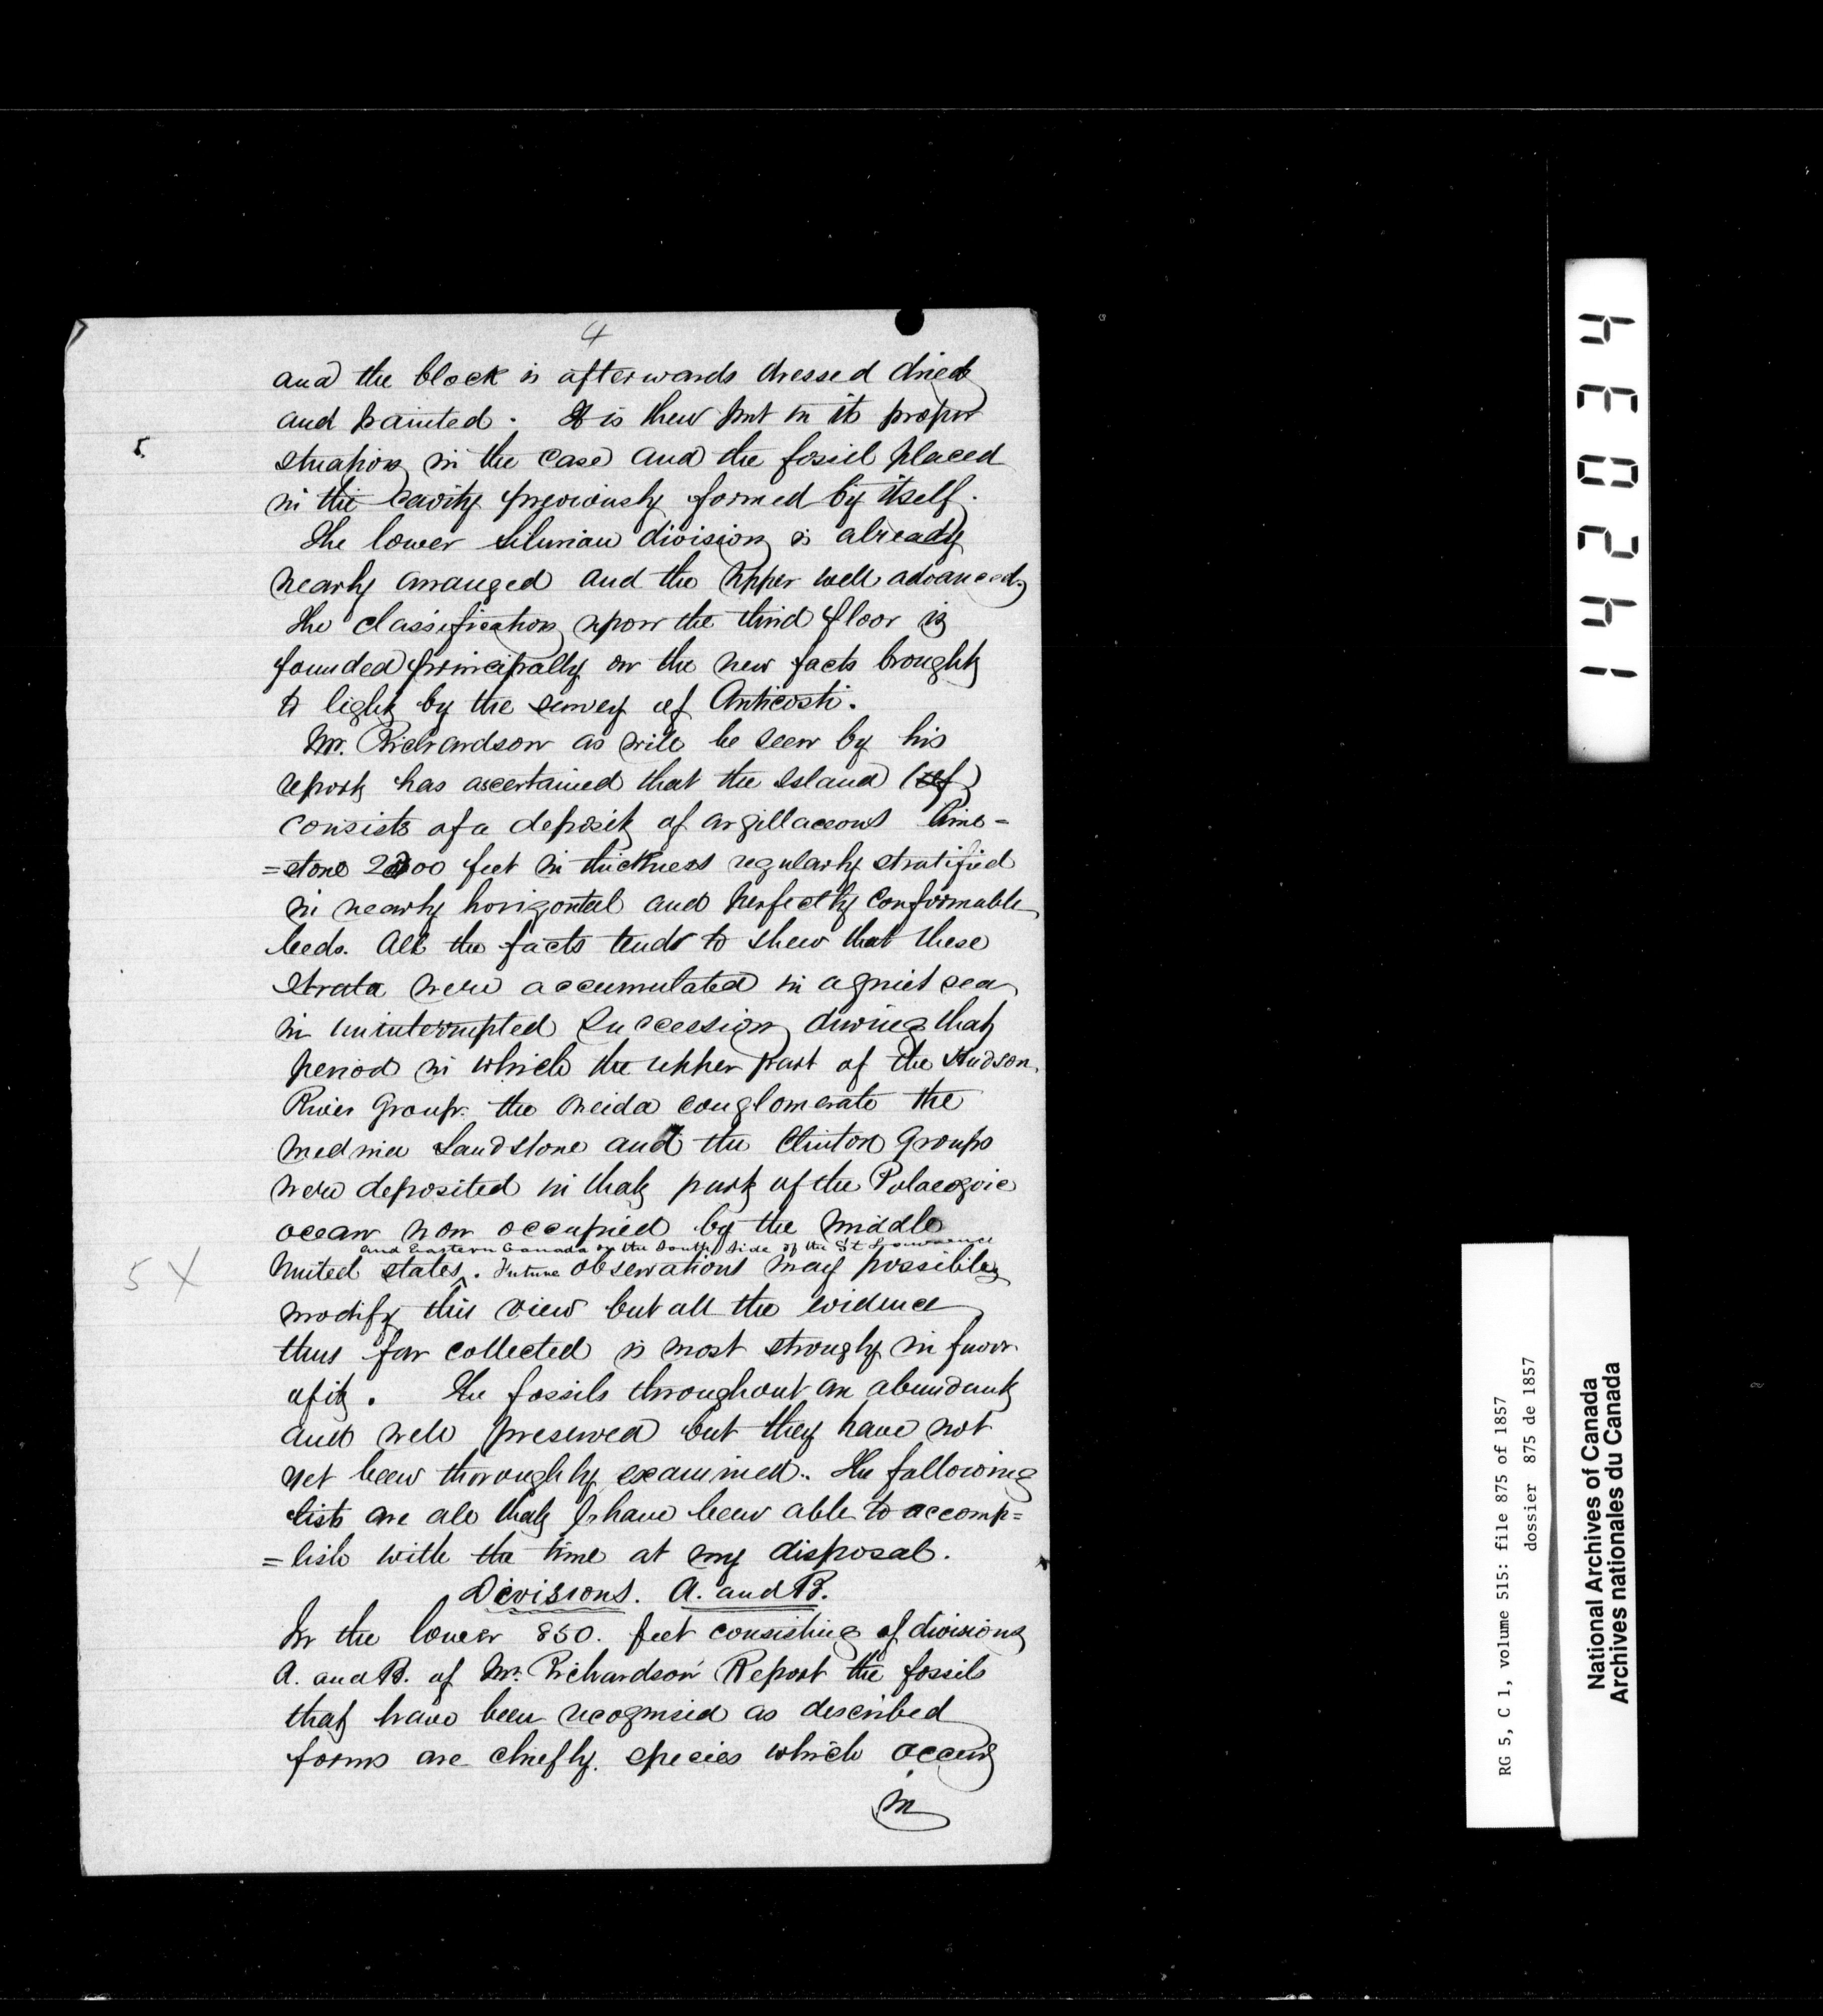 4
and the block is afterwards dressed dried
and painted. It is then put in its proper
5.
situation in the case and the fossil placed
in the cavity previously formed by itself.
The lower Silurian division is already
nearly arranged and the upper well advanced,
The classification upon the third floor is
founded principally on the new facts brought
to light by the survey of Anticosti.
Mr. Richardson as will be seen by his
report has ascertained that the Island (of)
consists of a deposit of argillaceous lime=
=stone 2300 feet in thickness regularly stratified
in nearly horizontal and perfectly conformable
beds. All the facts tend to shew that these
strata were accumulated in a quiet sea
in uninterrupted succession during that
period in which the upper part of the Hudson
River Group. the Oneida conglomerate the
medina Sandstone and the Clinton Groups
were deposited in that part of the Palaeozoic
ocean now occupied by the middle
and Eastern Canada on the South side of the St Lawrence
5 X
United states ^. Future observations may possibly
modify this view but all the evidence
thus far collected is most strongly in favor
of it. The fossils throughout are abundant
and well preserved but they have not
yet been thoroughly examined. The following
lists are all that I have been able to accomp=
=lish with the time at my disposal.
Divisions. A. and B.
In the lower 850. feet consisting of divisions
A. and B. of Mr. Richardson Report the fossils
that have been recognised as described
forms are chiefly. species which occur
in
142034
RG 5, C 1, volume 515: file 875 of 1857
dossier 875 de 1857
National Archives of Canada
Archives nationales du Canada